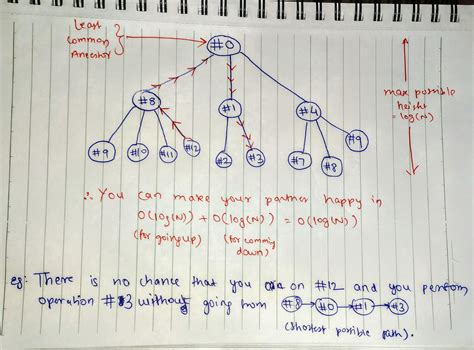 Least
Common
Ancestor
#0
max possible
height
= log(N)
#8
#1
#4
#9
#10
#11
#12
#2
#3
#7
#8
#9
∴ You can make your partner happy in
O(log(N)) + O(log(N)) = O(log(N))
(for going up) (for comming
down)
eg: There is no chance that you on #12 and you perform
operation #3 without going from #8 → #0 → #1 → #3
(shortest possible path).